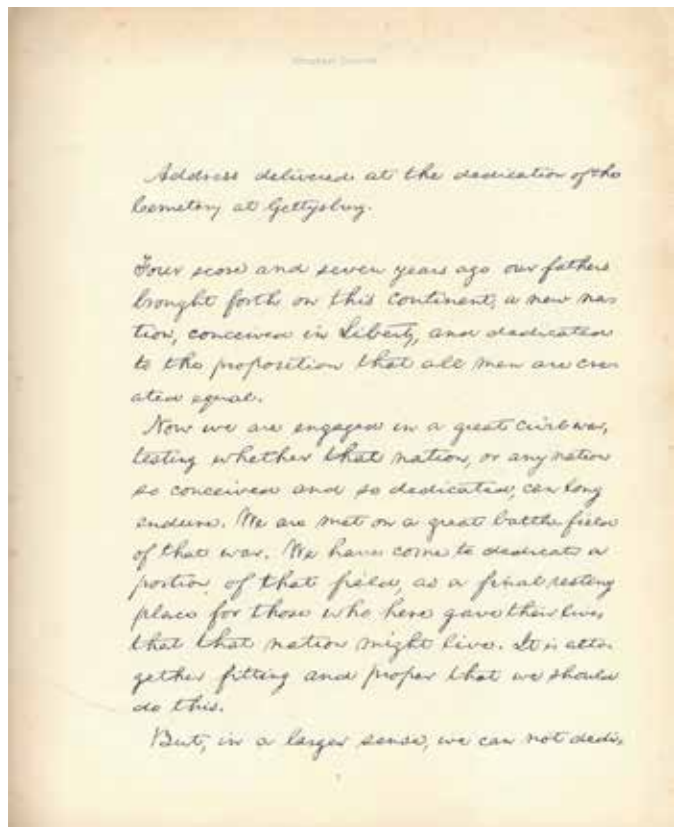 Address delivered at the dedication of the
Cemetery at Gettysburg.
Four score and seven years ago our fathers
brought forth on this continent, a new na-
tion, conceived in Liberty, and dedicated
to the proposition that all men are cre-
ated equal.
Now we are engaged in a great civil war,
testing whether that nation, or any nation
so conceived and so dedicated, can long
endure. We are met on a great battle-field
of that war. We have come to dedicate a
portion of that field, as a final resting
place for those who here gave their lives,
that that nation might live. It is alto-
gether fitting and proper that we should
do this.
But, in a larger sense, we can not dedi-